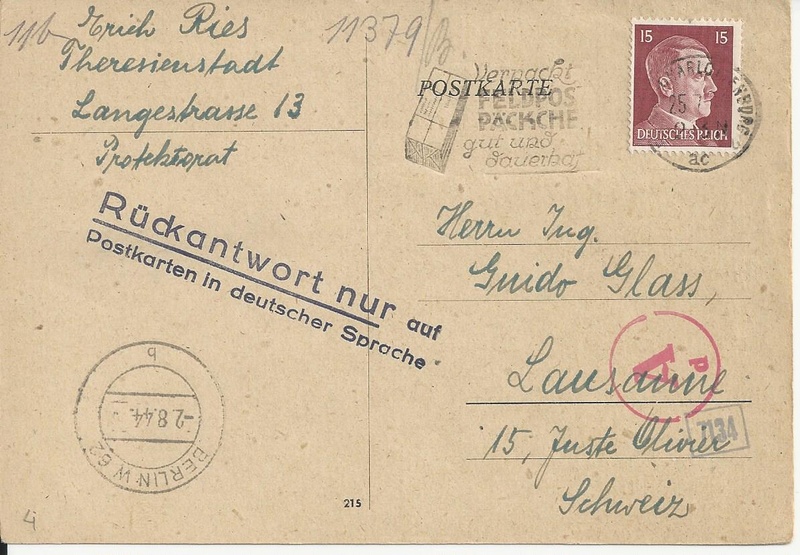 11b
Erich Ries
Theresienstadt
Langestrasse 13
Protektorat
11379
Verpackt
FELDPOS
PÄCKCHE
gut und
dauerhaf
POSTKARTE
15 15
DEUTSCHES REICH
25
ac
Rückantwort nur auf
Postkarten in deutscher Sprache
Herrn Ing.
Guido Glass,
Lausanne
15, Juste Olivier
Schweiz
P
A
7134
b
-2.8.44.
BERLIN·W 62
215
4